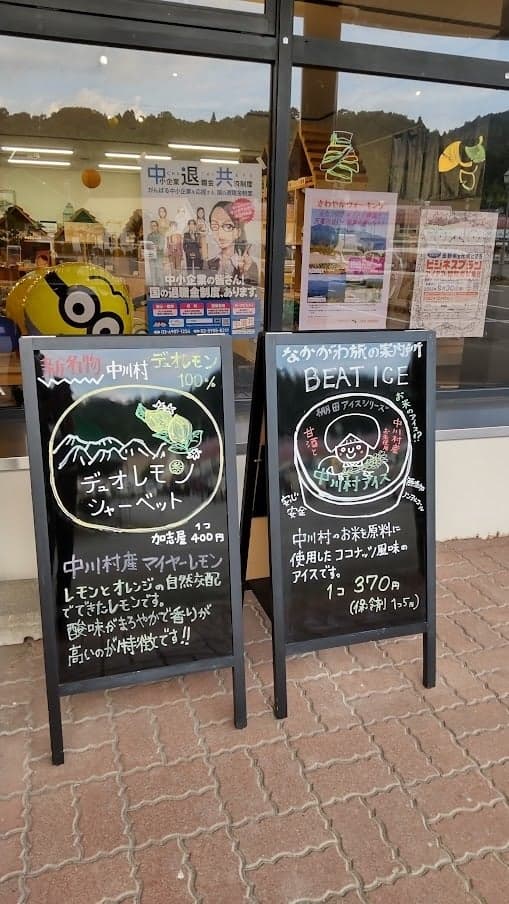 中小企業退職金共済制度
がんばる中小企業を応援する、国の退職金制度
中小企業の皆さん、
国の退職金制度があります。
さわやかウォーキング
ビジネスプラン
新名物 中川村 デュオレモン
100%
デュオレモン
シャーベット
1コ
加志屋 400円
中川村産マイヤーレモン
レモンとオレンジの自然交配
でできたレモンです。
酸味がまろやかで香りが
高いのが特徴です!!
なかがわ旅の案内所
BEAT ICE
棚田アイスシリーズ
お米のアイス!?
甘酒と
中川村産
お米使用
中川村アイス
安心
安全
無添加
ノンアルコール
中川村のお米を原料に
使用したココナッツ風味の
アイスです。
1コ 370円
(保冷剤 1つ5円)